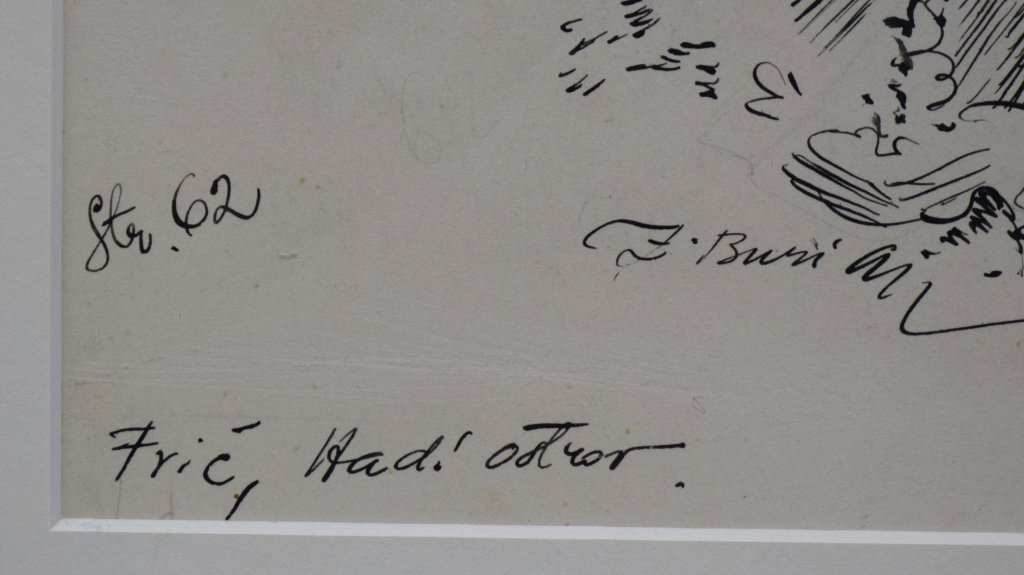 Str. 62
Z. Burian
Frič, Hadí ostrov.